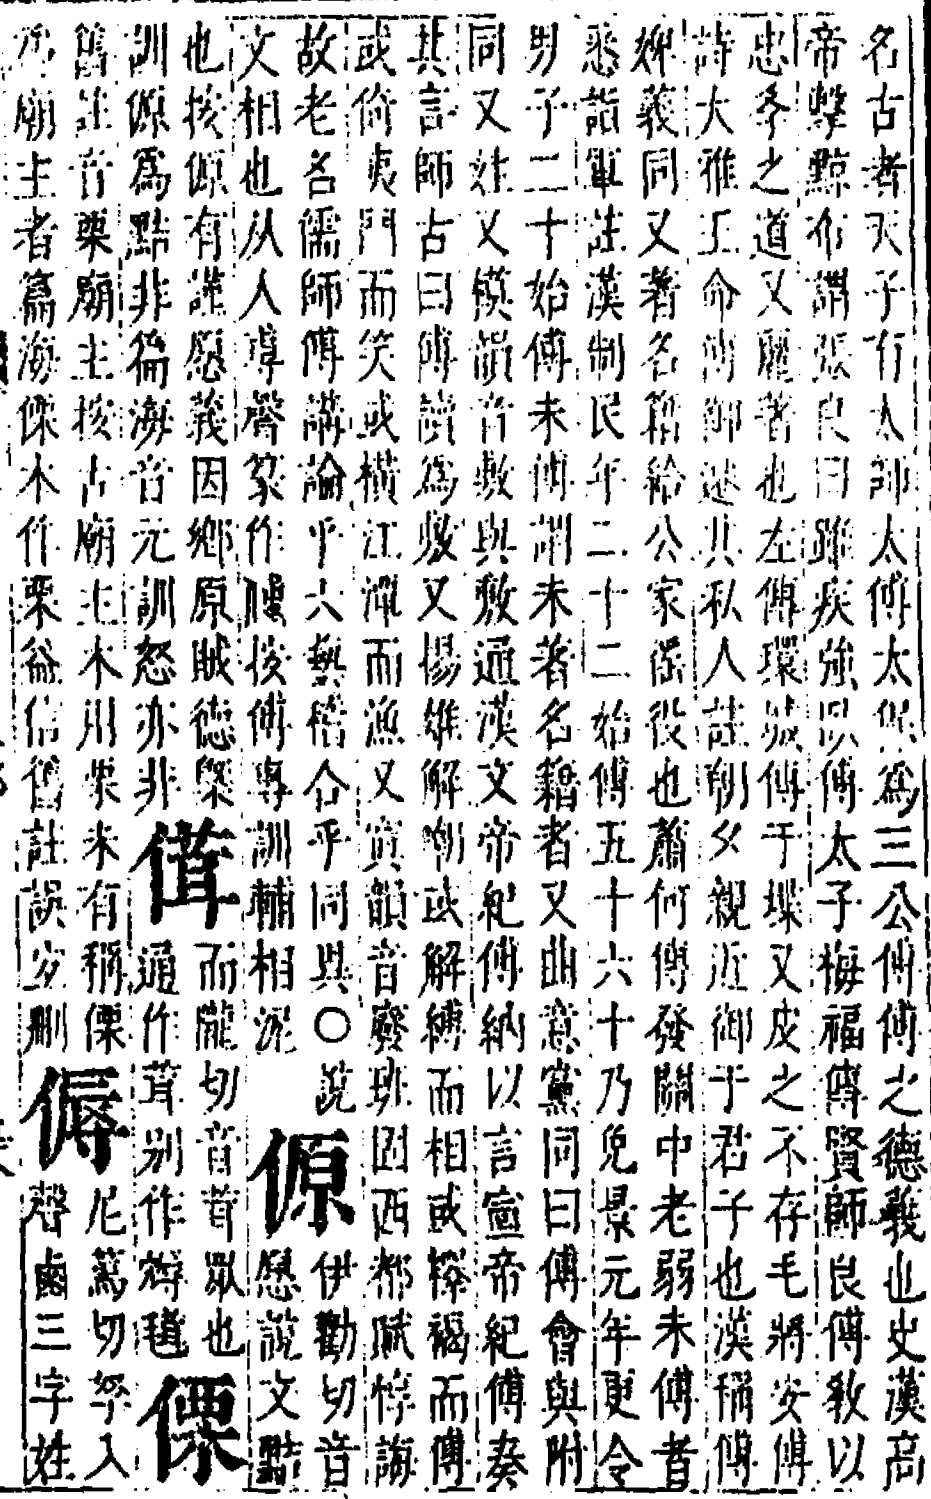 名古者天子有太師太傅太保為三公傅傅之德義也史漢高
帝擊黥布謂張良曰雖疾強以傅太子梅福傳賢師良傅教以
忠孝之道又麗著也左傳環城傅于堞又皮之不存毛將安傅
詩大雅王命傅御遷其私人註朝夕親近御于君子也漢稱傅
婢義同又著名籍給公家徭役也蕭何傳發關中老弱未傅者
悉詣軍註漢制民年二十二始傅五十六十乃免景元年更令
男子二十始傅未傅謂未著名籍者又曲意黨同曰傅會與附
同又姓又模韻音敷與敷通漢文帝紀傅納以言宣帝紀傅奏
其言師古曰傅讀為敷又揚雄解嘲或解縛而相或釋褐而傅
或倚夷門而笑或橫江潭而漁又寘韻音廢班固西都賦悖誨
故老名儒師傅講論乎六藝稽合乎同異〇說
文相也从人尃聲篆作𫝊按傅專訓輔相泥
傆伊勸切音愿說文黠
也按傆有謹愿義因鄉原賊德槩
訓傆為黠非篇海音元訓怒亦非
偆而隴切音茸眾也
通作茸別作㲨𣯏
傈
舊註音栗廟主按古廟主木用栗未有稱傈
為廟主者篇海傈木作栗益信舊註誤宜刪
傉尼篤切孥入
聲鹵三字姓